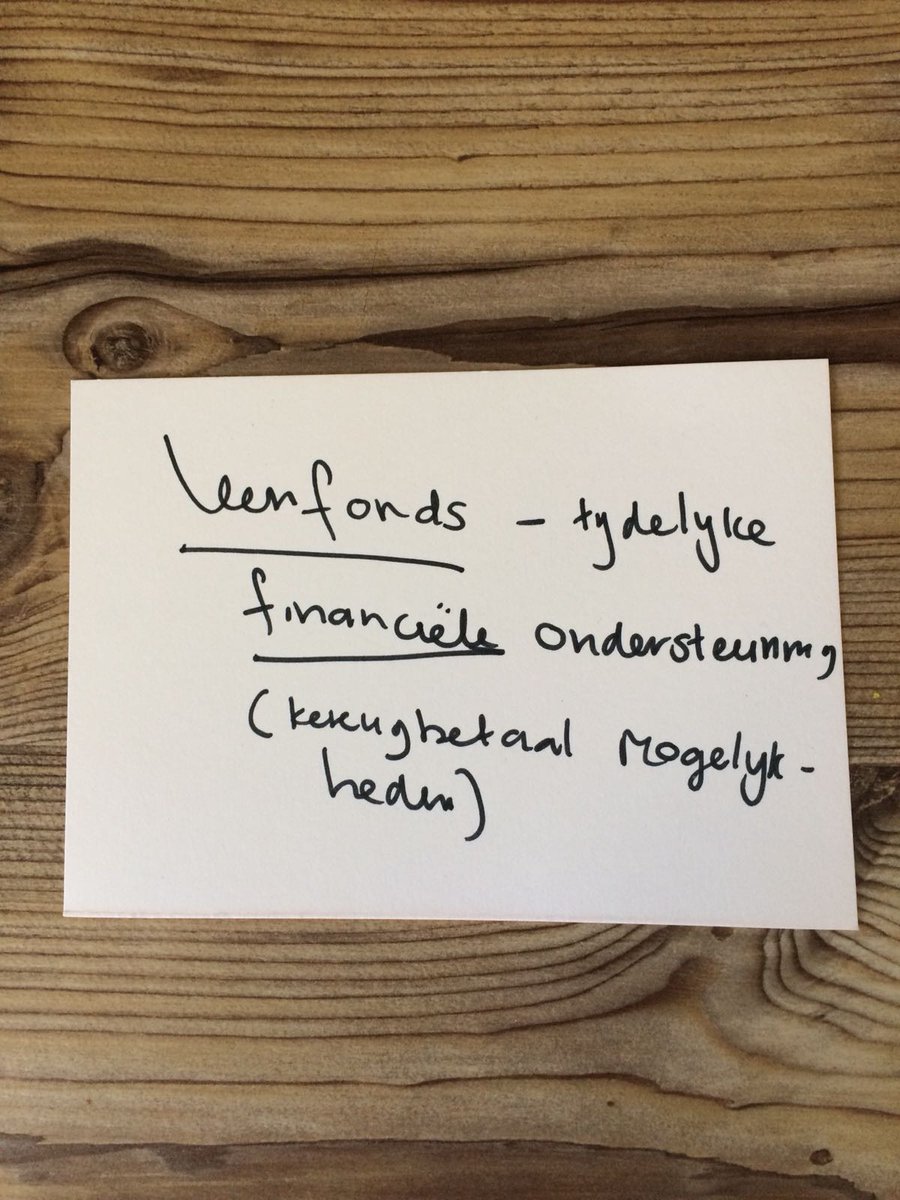 leenfonds - tydelyke
financiële ondersteuning
(terugbetaal mogelyk-
heden)